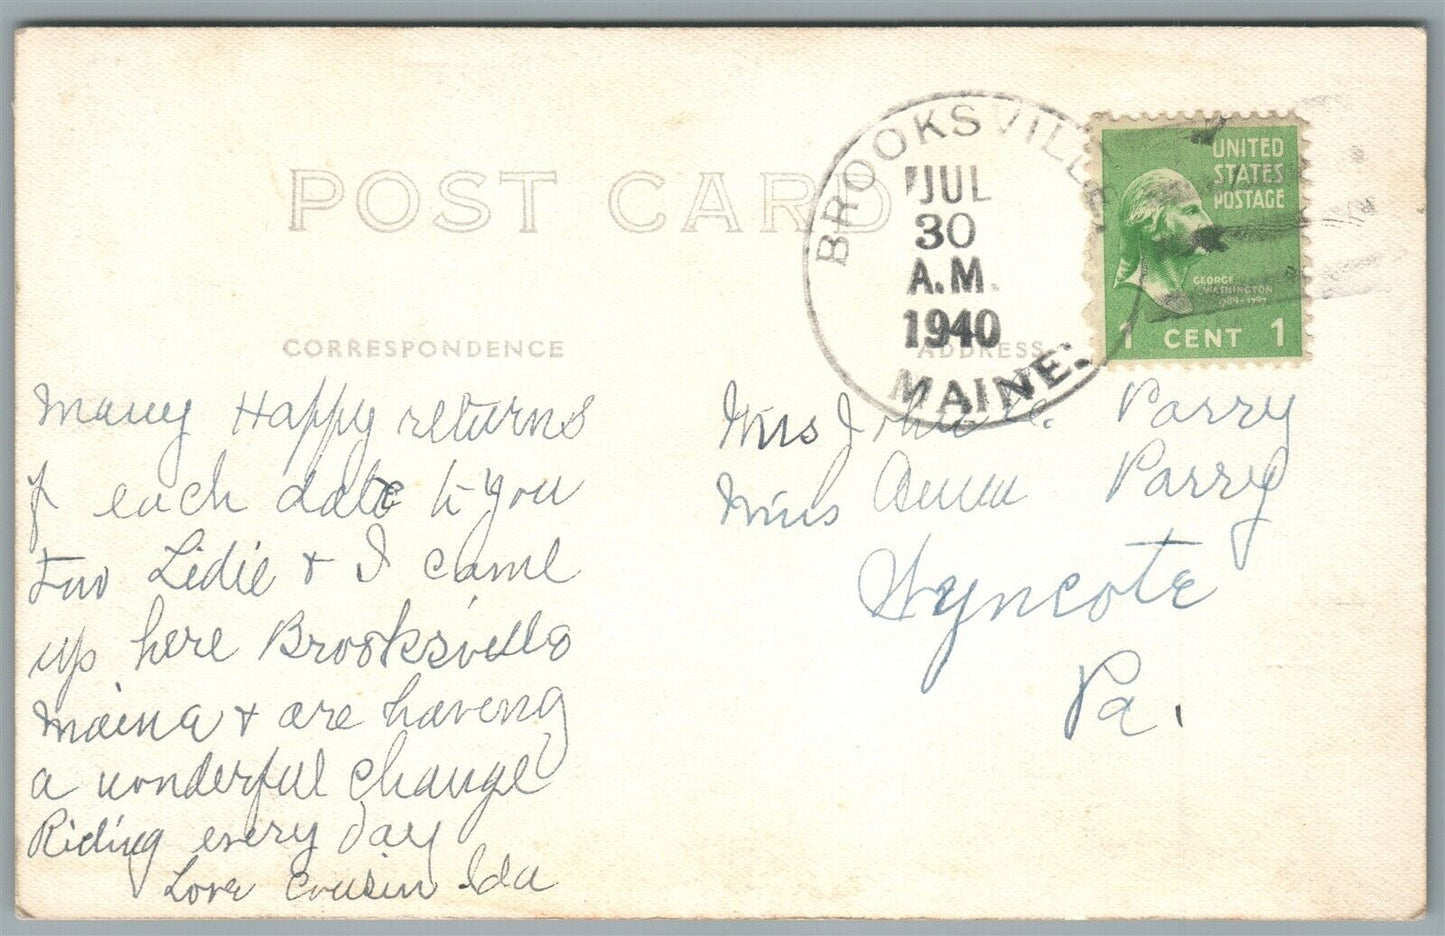 POST CARD
CORRESPONDENCE
ADDRESS
BROOKSVILLE
JUL
30
A.M.
1940
MAINE.
UNITED
STATES
POSTAGE
GEORGE
WASHINGTON
1789-1797
1 CENT 1
Many Happy returns
of each date to you
two Lidie + I came
up here Brooksville
Maine + are having
a wonderful change
Riding every day
Love Cousin Ida
Mrs John Parry
Miss Anna Parry
Wyncote
Pa.